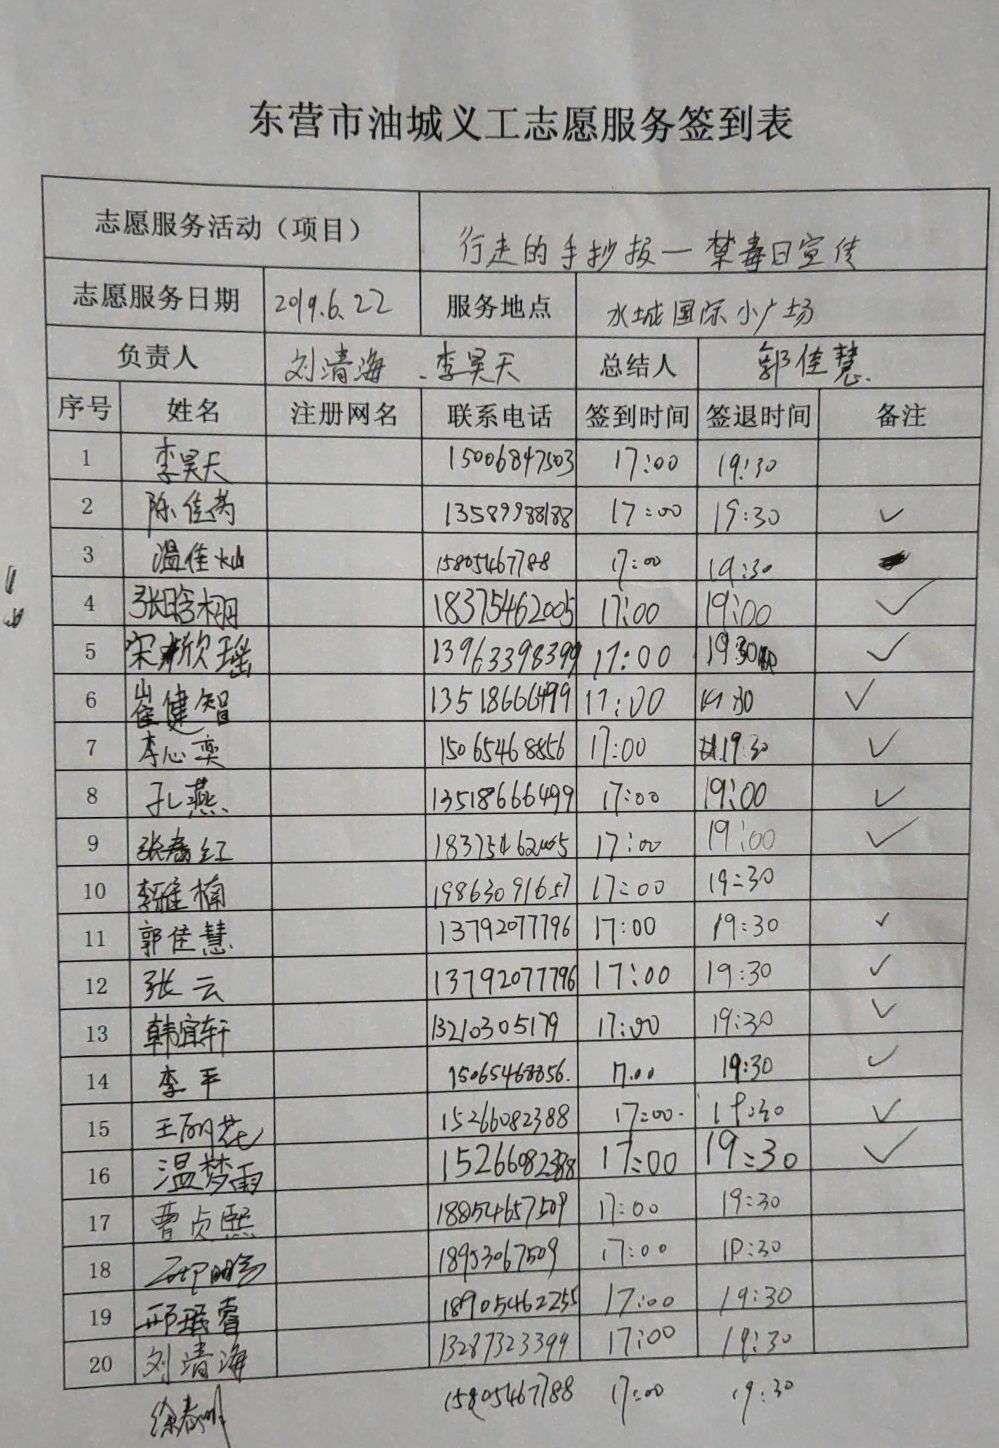 东营市油城义工志愿服务签到表
志愿服务活动（项目） 行走的手抄报一禁毒日宣传
志愿服务日期 2019.6.22 服务地点 水城国际小广场
负责人 刘清海 、李昊天 总结人 郭佳慧.
序号 姓名 注册网名 联系电话 签到时间 签退时间 备注
1 李昊天 15006847503 17:00 19:30
2 陈佳 13589988188 17:00 19:30 ✓
3 温佳灿 15805467788 17:00 19:30
4 张晗栩 18375462005 17:00 19:00 ✓
5 宋欣瑶 13963398399 17:00 19:30 ✓
6 崔健智 13518666499 17:00 19:30 ✓
7 李心奕 15065468856 17:00 19:30 ✓
8 孔燕. 13518666499 17:00 19:00 ✓
9 张春红 18375462005 17:00 19:00 ✓
10 李雅楠 19863091657 17:00 19:30
11 郭佳慧. 13792077796 17:00 19:30 ✓
12 张云 13792077796 17:00 19:30 ✓
13 韩宜轩 13210305179 17:00 19:30 ✓
14 李平 15065468856. 17:00 19:30 ✓
15 王丽花 15266082388 17:00. 19:30 ✓
16 温梦雨 15266082388 17:00 19:30 ✓
17 曹贞熙 18854657509 17:00 19:30
18 18953067509 17:00 19:30
19 邱珉睿 18905462255 17:00 19:30
20 刘清海 13287323399 17:00 19:30
徐春 15805467788 17:00 19:30